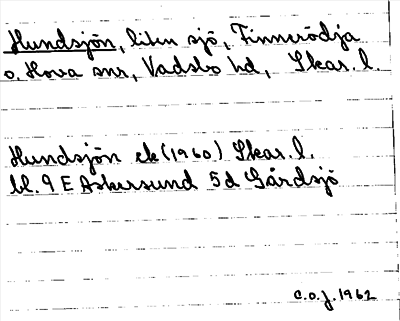 Hundsjön, liten sjö, Finnerödja
o. Hova snr, Vadsbo hd, Skar. l.
Hundsjön ek (1960) Skar. l.
bl. 9 E Askersund 5d Gårdsjö
C.O.J. 1962